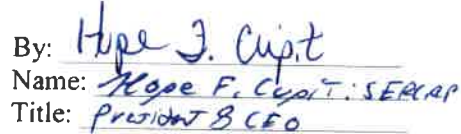 By: Hope F. Cupit
Name: Hope F. Cupit: SERCAP
Title: President & CEO